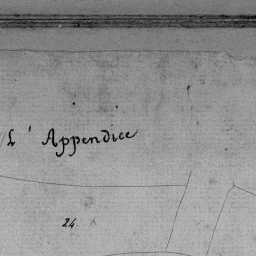 L' Appendice
24